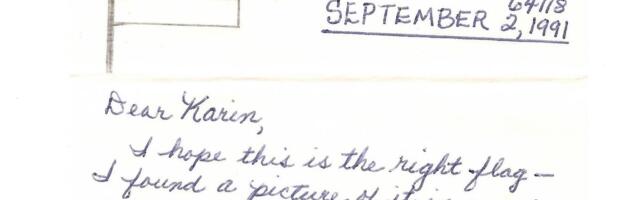 64118
SEPTEMBER 2, 1991
Dear Karin,
I hope this is the right flag—
I found a picture of it